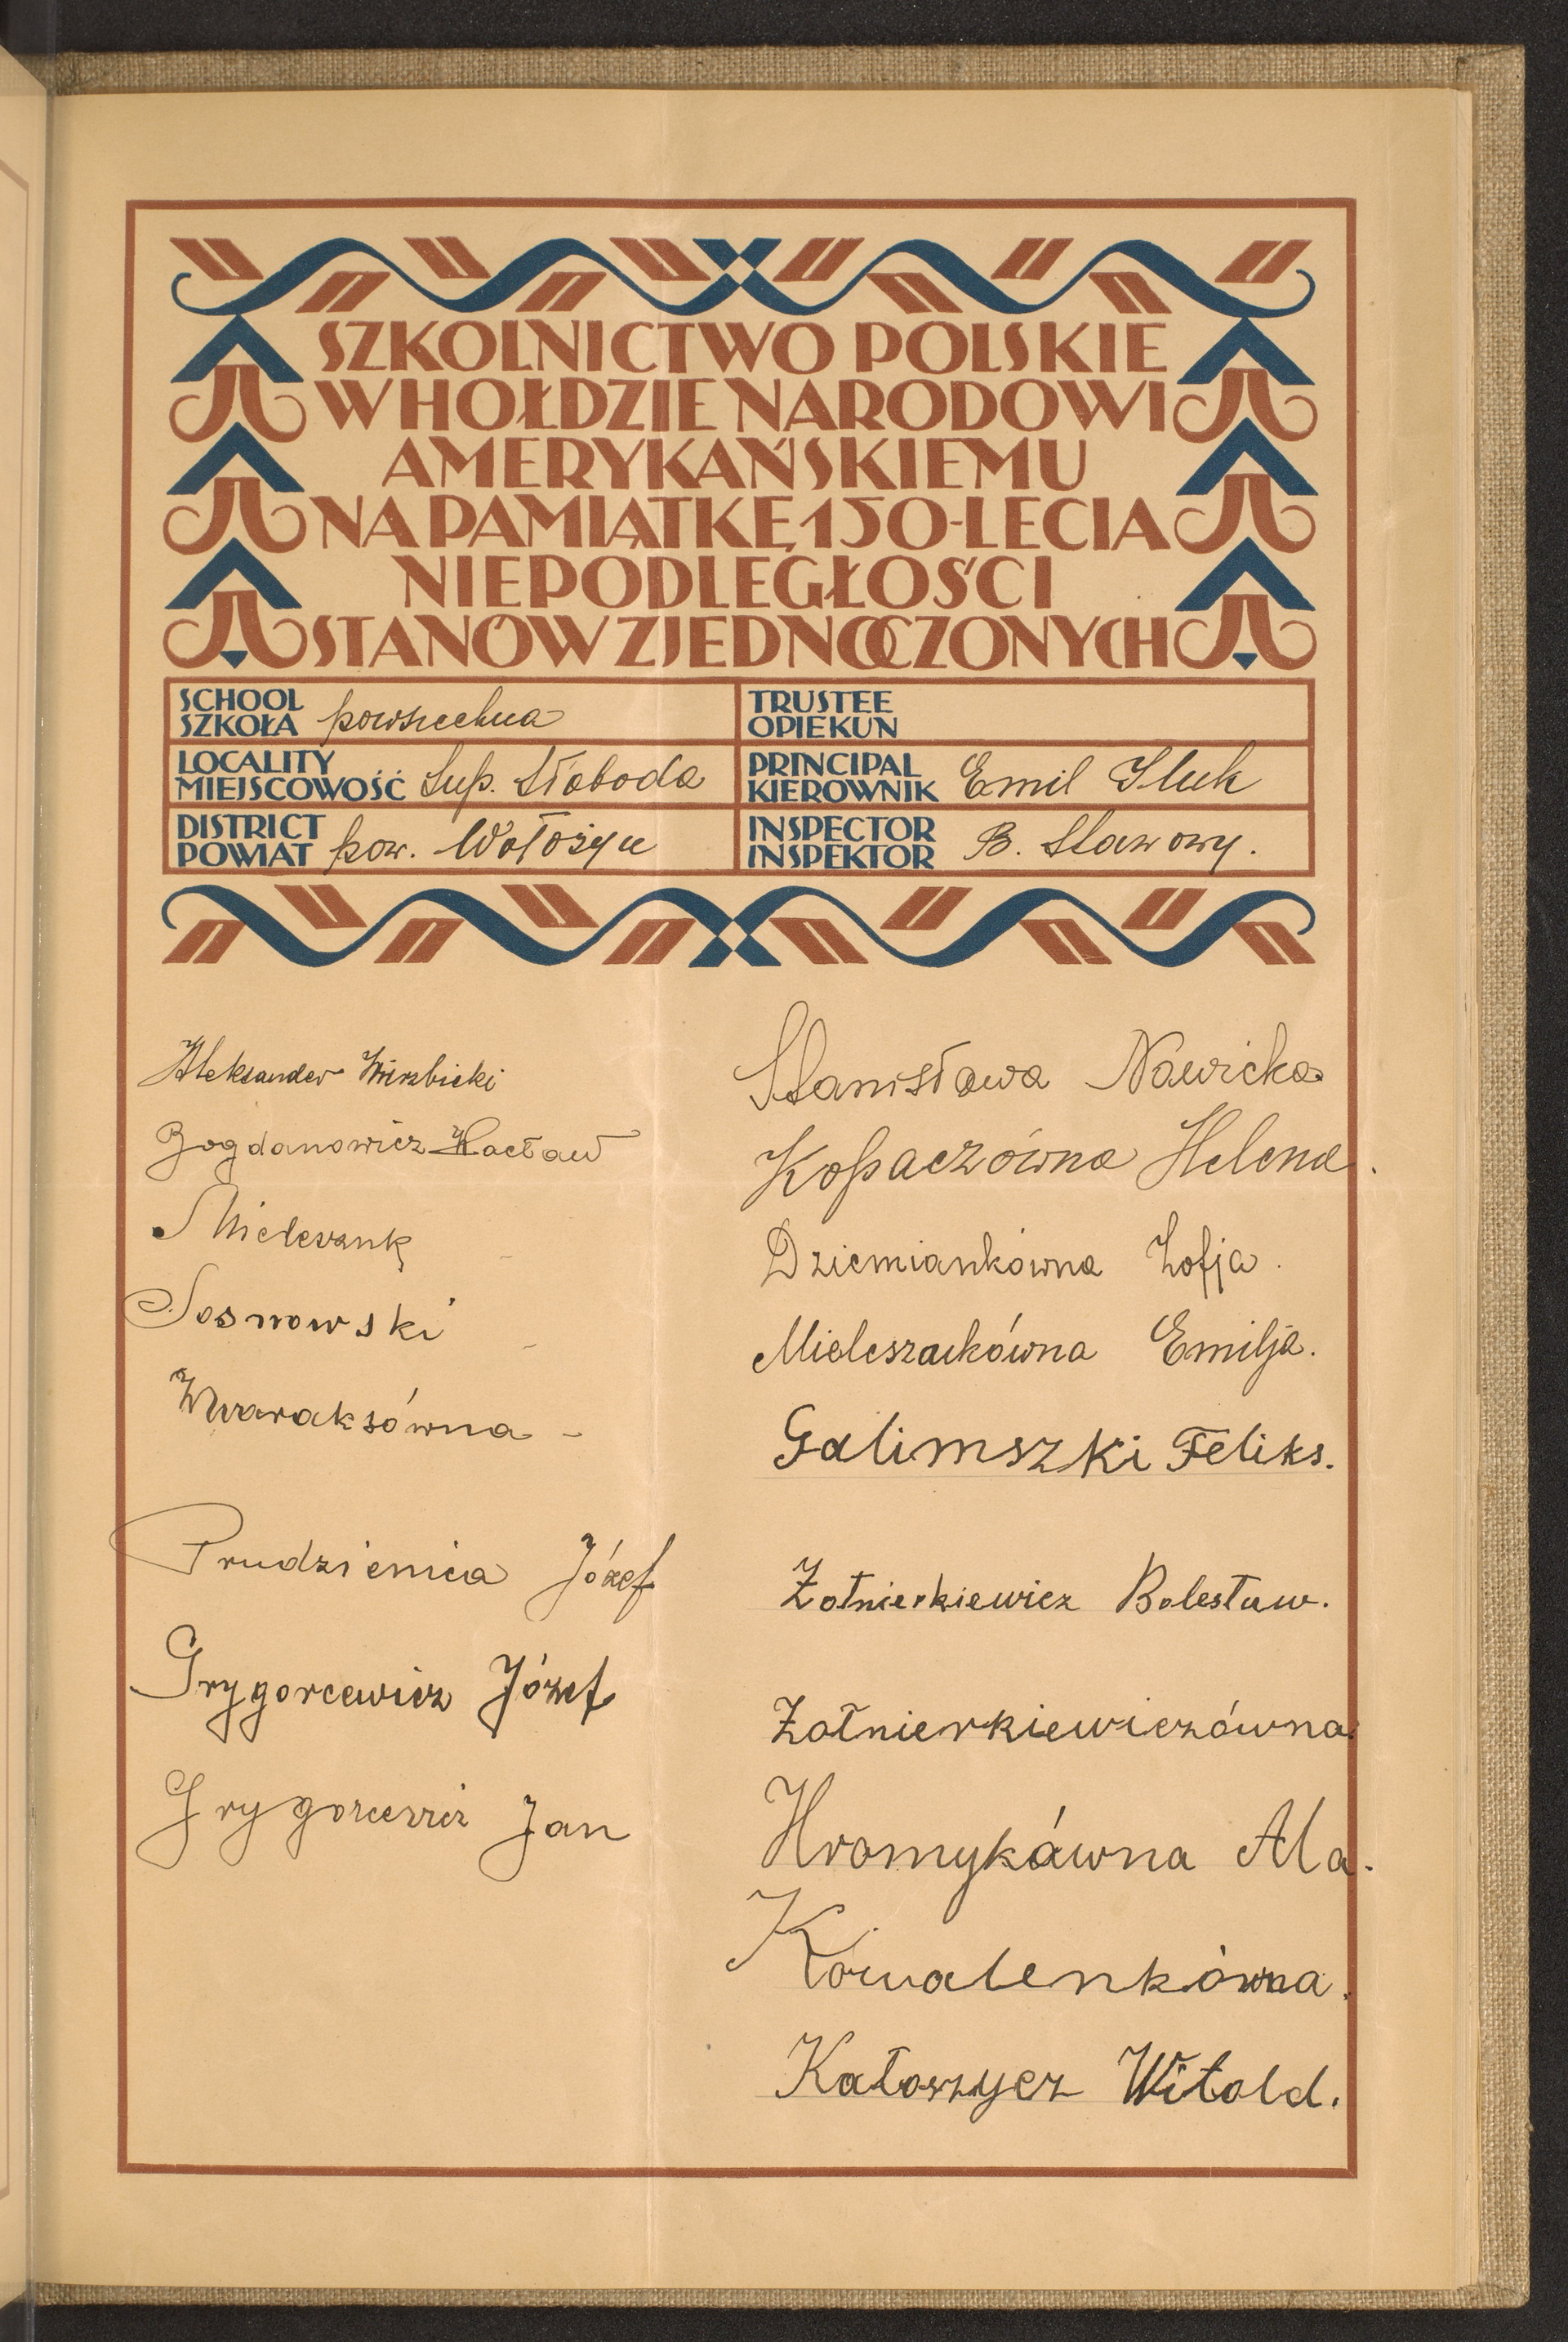 SZKOLNICTWO POLSKIE
W HOŁDZIE NARODOWI
AMERYKAŃSKIEMU
NA PAMIĄTKĘ 150-LECIA
NIEPODLEGŁOŚCI
STANÓW ZJEDNOCZONYCH
SCHOOL
SZKOŁA powszechna
TRUSTEE
OPIEKUN
LOCALITY
MIEJSCOWOŚĆ Sup. Słoboda
PRINCIPAL
KIEROWNIK Emil
DISTRICT
POWIAT pow. Wołożyn
INSPECTOR
INSPEKTOR B. Stawowy.
Aleksander Wirzbicki
Bogdanowicz Wacław
Sosnowski
Waraksówna -
Prudzienica Józef
Grygorcewicz Józef
Grygorcewicz Jan
Stanisława Nawicka
Kopaczówna Helena.
Dziemiankówna Zofja.
Mieleszaukówna Emilja.
Galimszki Feliks.
Żołnierkiewicz Bolesław.
Żołnierkiewiczówna.
Hromykówna Ala.
Kowalenkówna.
Kałoszycz Witold.